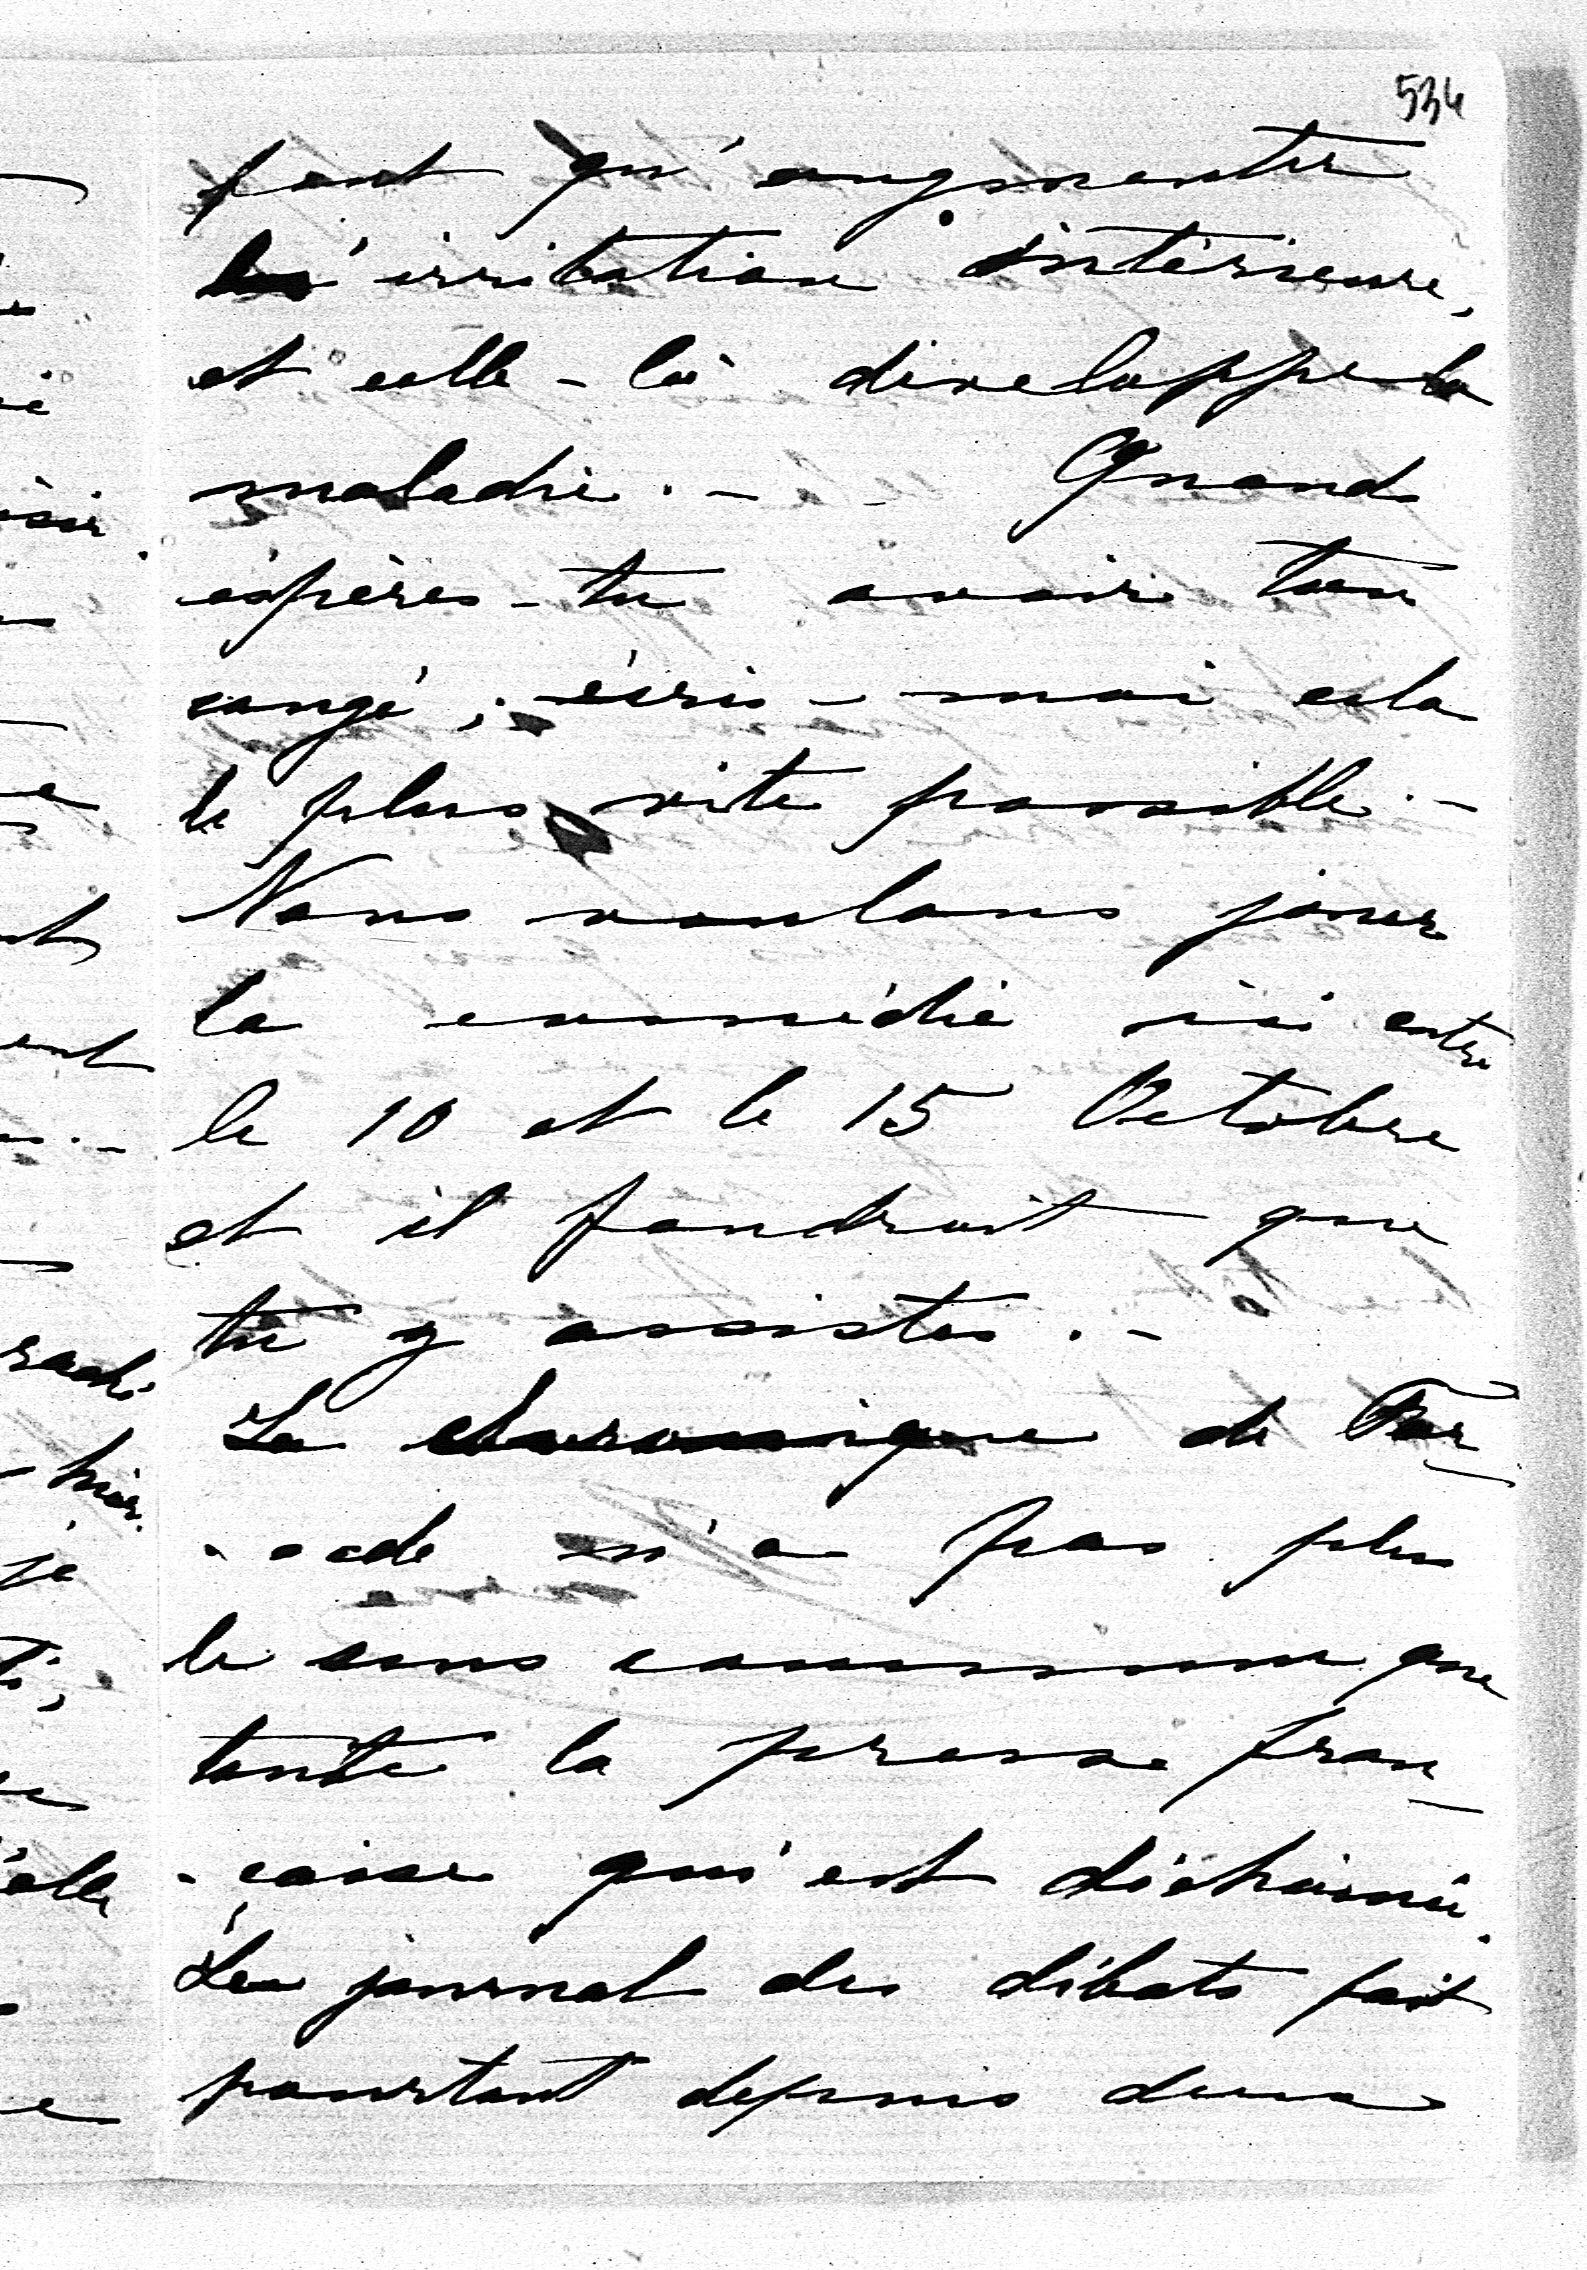 534
font qu'augmenter
l'irritation intérieure,
et celle-là développe la
maladie. - - Quand
espères-tu avoir ton
congé; écris-moi cela
le plus vite possible. -
Nous voulons jouer
la comédie ici entre
le 10 et le 15 Octobre
et il faudrait que
tu y assistes. -
La chronique de
n'a pas plus
le sens commun que
toute la presse fran-
-çaise qui est déchainée.
Le journal des débats fait
pourtant depuis deux